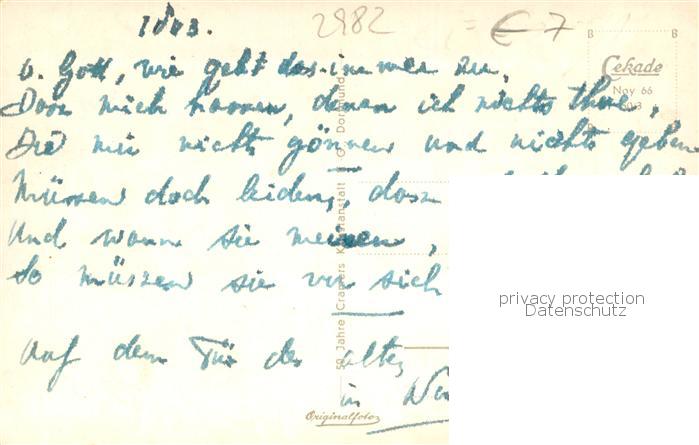 1803.
2982
€ 7
B B
Cekade
Nov 66
o. Gott, wie geht das immer zu,
Dasz mich hassen, denen ich nichts thue,
Die mir nichts gönnen und nichts geben
Müssen doch leiden, dasz
Und wann sie meinen,
So müssen sie vor sich
Auf dem Tür der alten
in
50 Jahre Cramers Kunstanstalt K. G., Dortmund
Originalfoto
privacy protection
Datenschutz